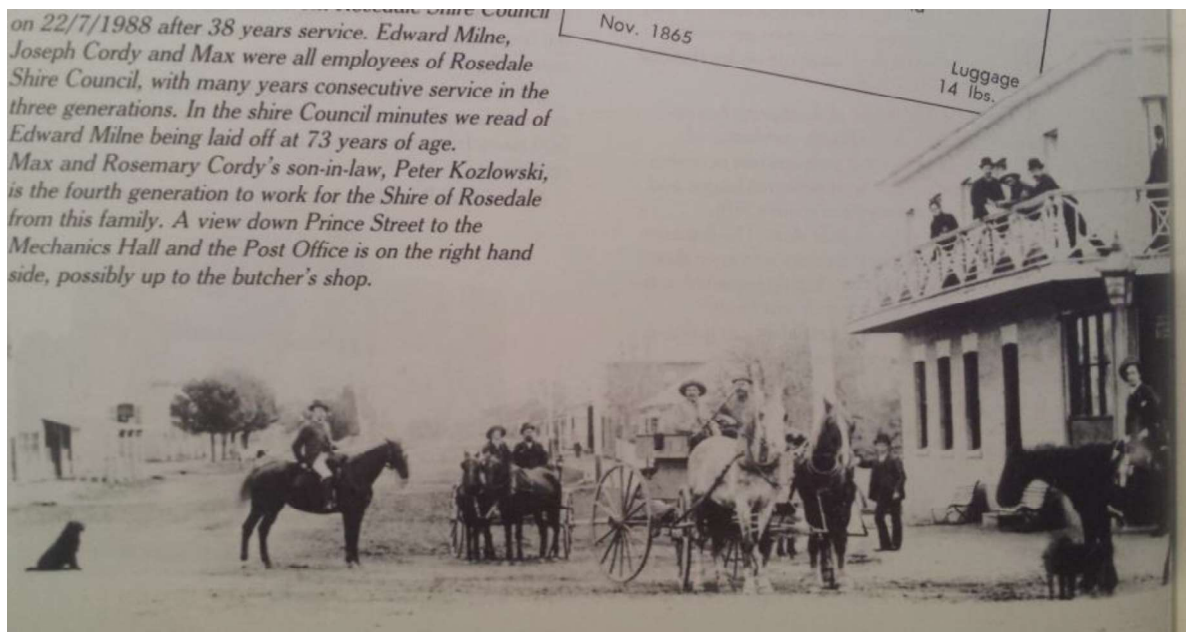 Rosedale Shire Council
on 22/7/1988 after 38 years service. Edward Milne,
Joseph Cordy and Max were all employees of Rosedale
Shire Council, with many years consecutive service in the
three generations. In the shire Council minutes we read of
Edward Milne being laid off at 73 years of age.
Max and Rosemary Cordy's son-in-law, Peter Kozlowski,
is the fourth generation to work for the Shire of Rosedale
from this family. A view down Prince Street to the
Mechanics Hall and the Post Office is on the right hand
side, possibly up to the butcher's shop.
Nov. 1865
Luggage
14 lbs.